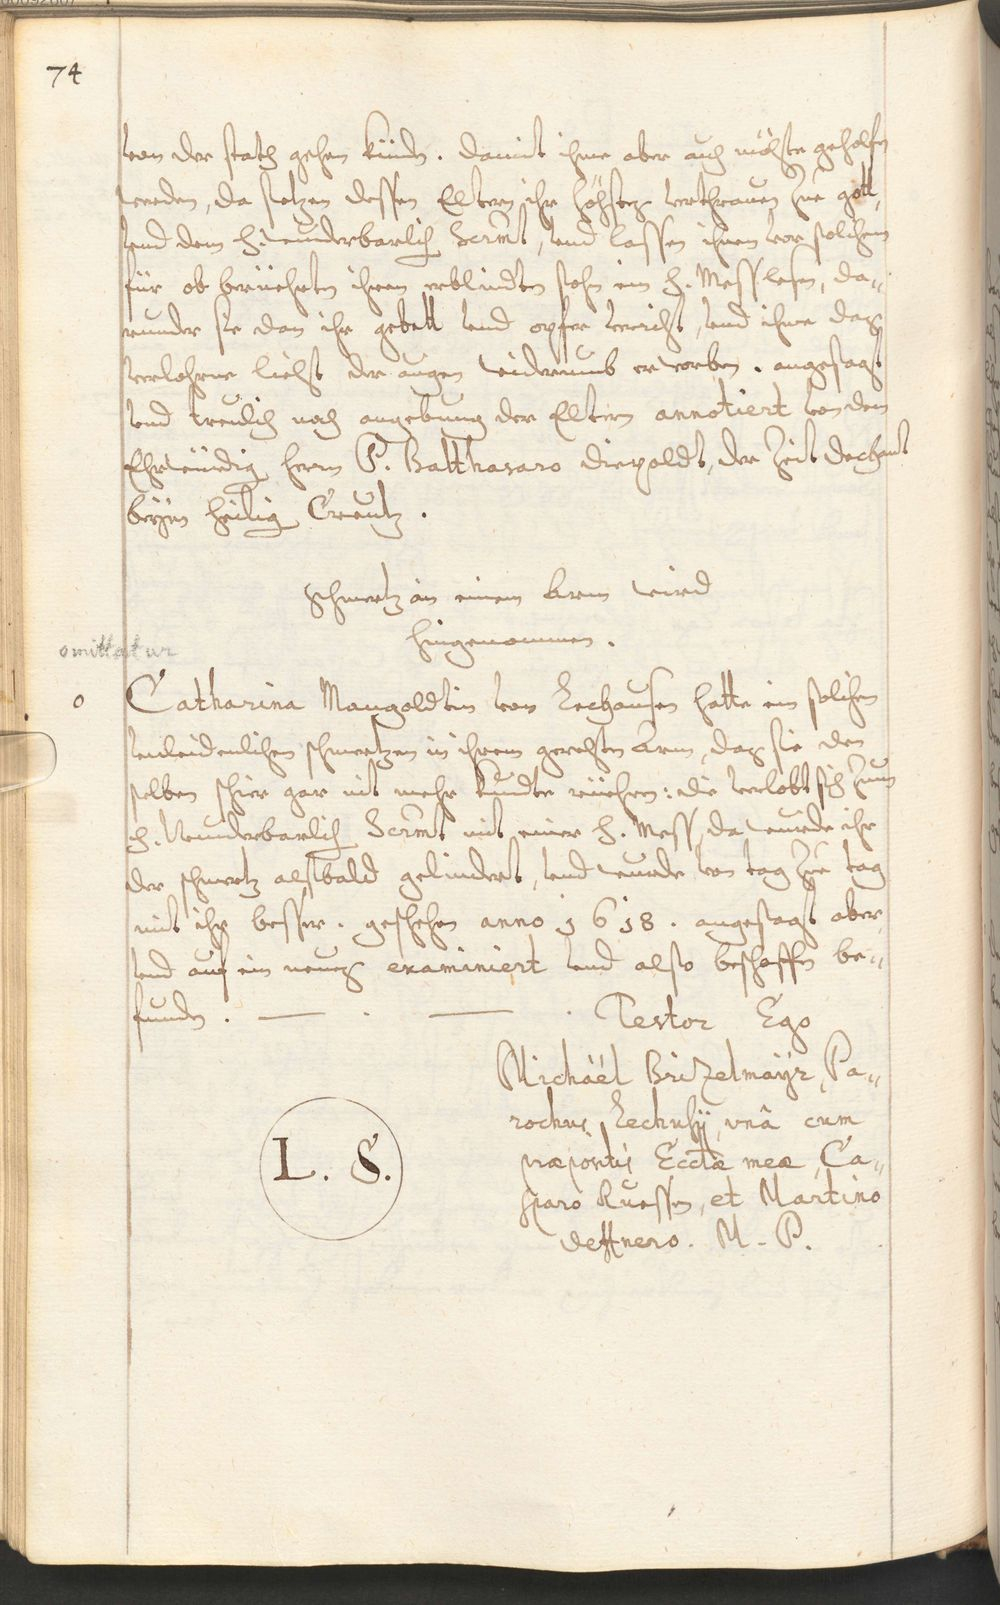 74
von der stath gehen kündt. damit ihme aber auch möchte geholfen
werden, da setzen dessen Eltern ihr höchstes vertrauen zue gott,
vnd dem h. wunderbarlich Scrmt, vnd lassen ihnen vor solchem
für ob berüehrten ihren erblindten sohn ein h. Mess lesen, da„
runder sie dan ihr gebett vnd opfer verricht, vnd ihme das
verlohrne liecht der augen widerumb erworben. angesagt
vnd treulich nach angebung der Eltern annotiert von dem
Ehrwürdig herrn P. Balthasaro diepoldt, der Zeit dechant
beÿm heilig Creutz.
Schmertz an einem Arm wird
hingenommen.
omittatur
o Catharina Mangoldtin von Lechausen hatte ein solchen
vnleidenlichen schmertzen in ihrem gerechten Arm, das sie den
selben schier gar nit mehr kundte rüehren: die verlobt sich zum
h. Wunderbarlich Scrmt mit einer h. Mess, da wurde ihr
der schmertz alsbald gelindert, vnd wurde von tag zue tag
mit ihr besser. geschehen anno 1618. angesagt aber
vnd auf ein neues examiniert vnd also beschaffen be„
funden. — . — . Testor Ego
Michäel Brizelmaÿr, Pa„
rochus Lechusÿ, vnâ cum
præpositis Ecctæ meæ, Ca„
sparo Ruessen, et Martino
dettnero. M. P.
L. S.